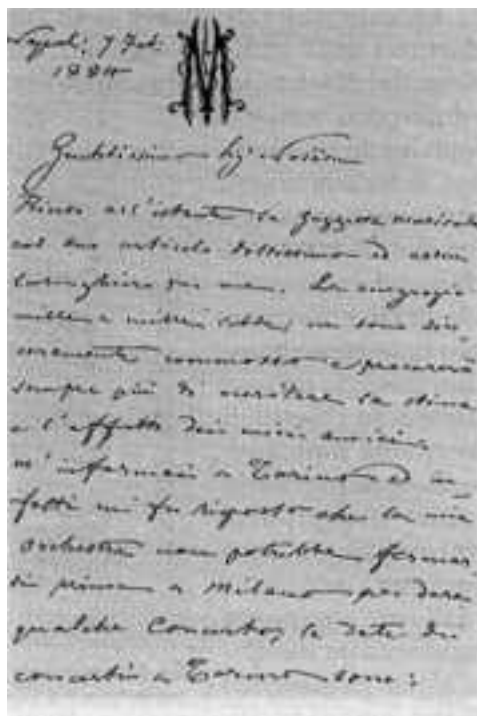 Napoli 7 Feb.
1884
M
Gentilissimo Sig.
Ricevo all'istante la Gazzetta musicale
col suo articolo dottissimo ed assai
lusinghiero per me. La ringrazio
mille e mille volte, ne sono sin-
ceramente commosso e procurerò
sempre più di meritare la stima
e l'affetto dei miei amici.
M'informai a Torino ed in-
fatti mi fu risposto che la mia
orchestra non potrebbe fermar-
si prima a Milano per dare
qualche Concerto, le date dei
concerti a Torino sono: